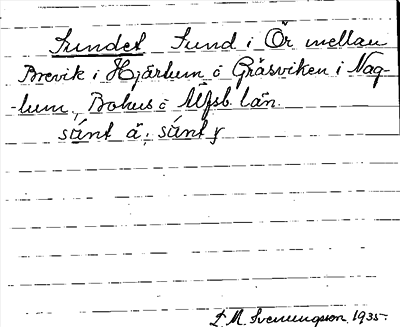 Sundet Sund i Ör mellan
Brevik i Hjärtum o Gräsviken i Nag-
-lum, Bohus o Älfsb. län.
súnt ä; súnt
F. M. Svenungsson 1935.